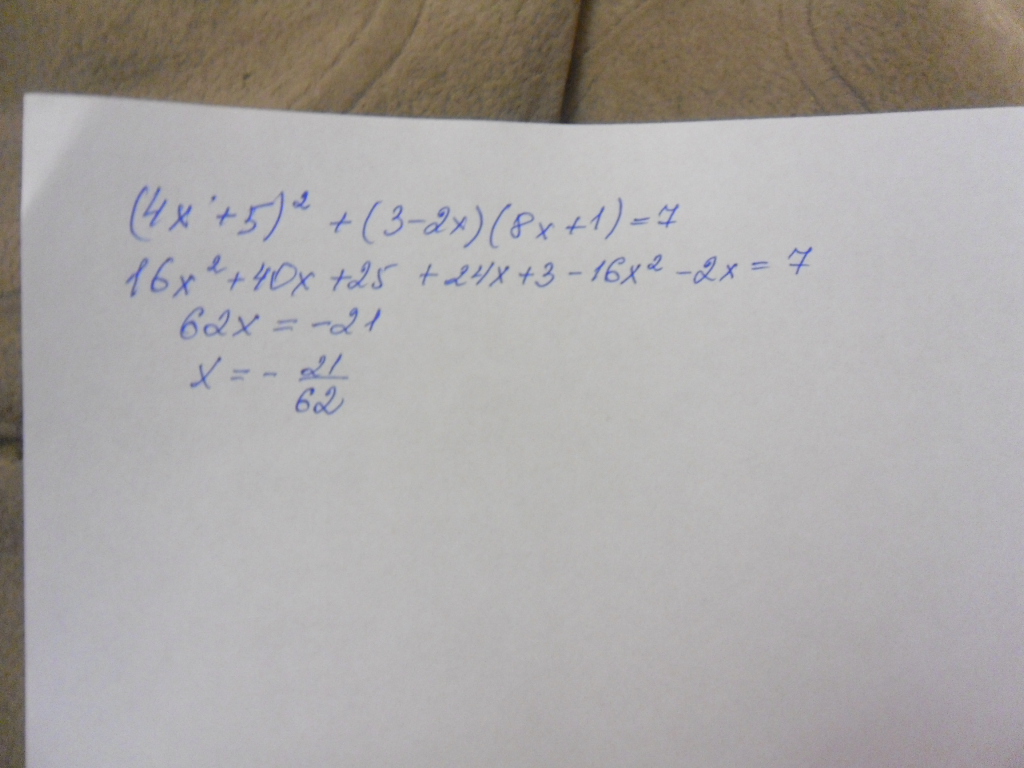 (4x+5)² + (3-2x)(8x+1)=7
16x²+40x+25 +24x+3-16x²-2x=7
62x=-21
x=-21/62